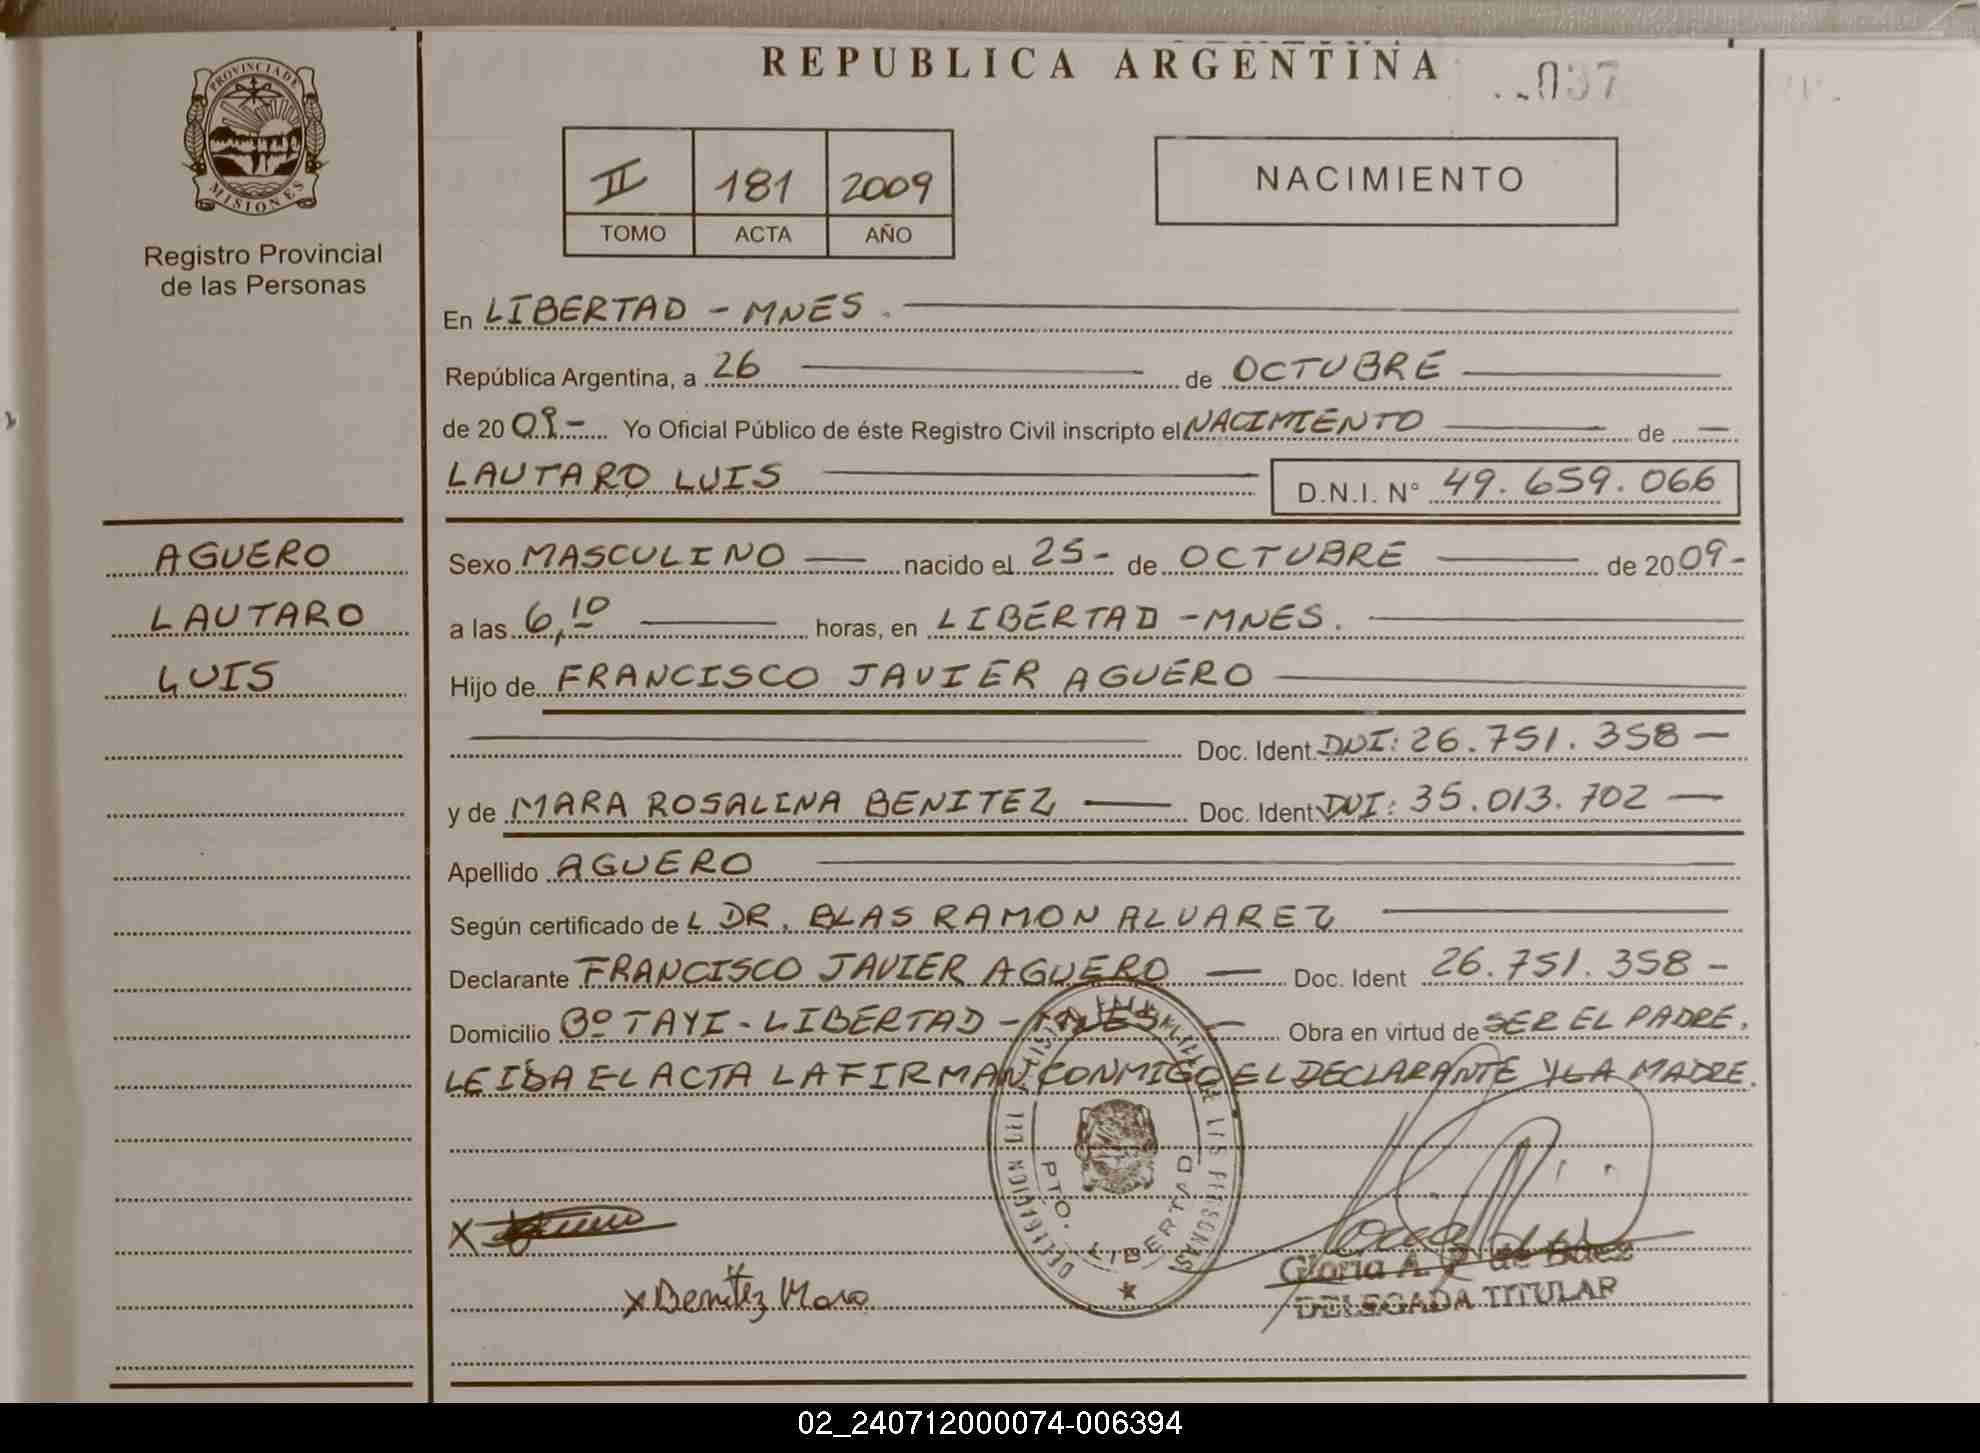 REPUBLICA ARGENTINA
037
PROVINCIA DE MISIONES
Registro Provincial
de las Personas
II 181 2009
TOMO ACTA AÑO
NACIMIENTO
En LIBERTAD - MNES.
República Argentina, a 26 de OCTUBRE
de 2009- Yo Oficial Público de éste Registro Civil inscripto el NACIMIENTO de -
LAUTARO LUIS D.N.I. N° 49.659.066
AGUERO
LAUTARO
LUIS
Sexo MASCULINO nacido el 25- de OCTUBRE de 2009-
a las 6,10 horas, en LIBERTAD - MNES.
Hijo de FRANCISCO JAVIER AGUERO
Doc. Ident. DNI: 26.751.358 -
y de MARA ROSALINA BENITEZ Doc. Ident DNI: 35.013.702 -
Apellido AGUERO
Según certificado de L DR. BLAS RAMON ALVAREZ
Declarante FRANCISCO JAVIER AGUERO - Doc. Ident 26.751.358 -
Domicilio Bº TAYI - LIBERTAD - MNES - Obra en virtud de SER EL PADRE,
LEIDA EL ACTA LA FIRMAN CONMIGO EL DECLARANTE Y LA MADRE.
DELEGACION DEL REGISTRO PROVINCIAL DE LAS PERSONAS
PTO. LIBERTAD
X
X Benitez Mara
Gloria A. de Baez
DELEGADA TITULAR
02_240712000074-006394